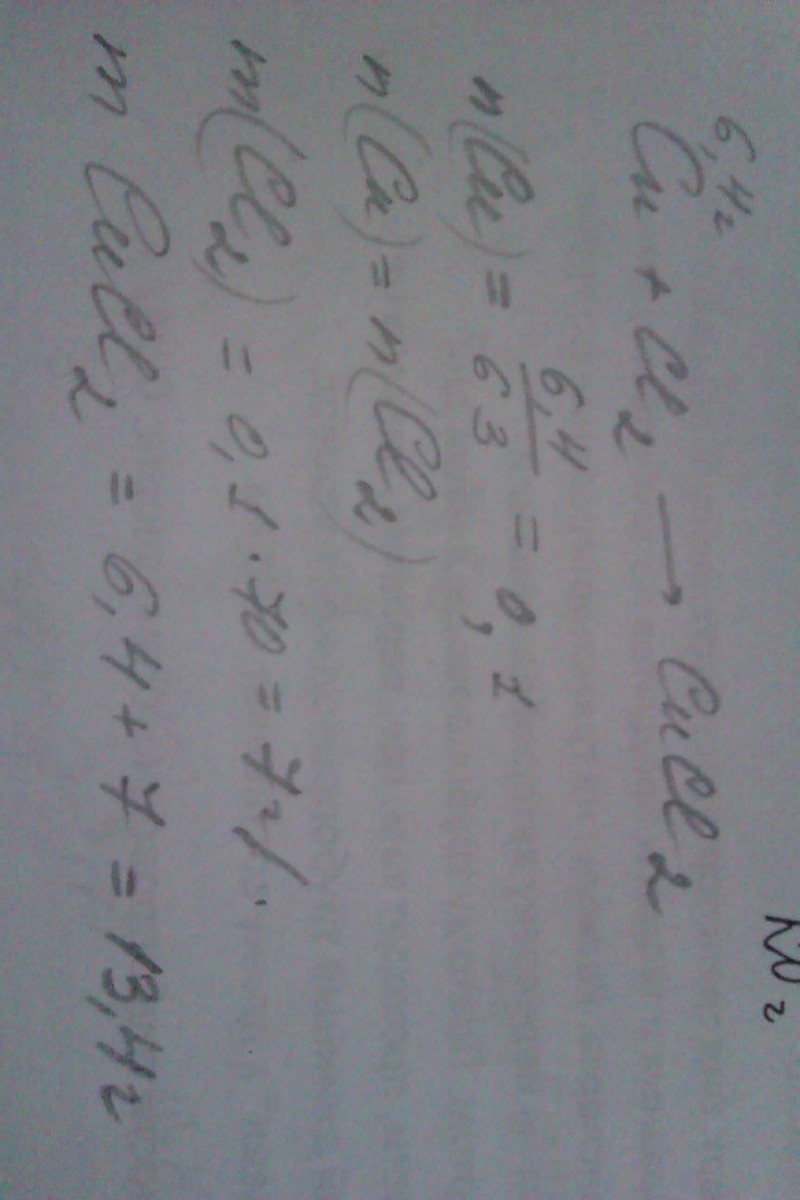 6,4г
Cu + Cl₂ → CuCl₂
n(Cu) = 6,4/63 = 0,1
n(Cu) = n(Cl₂)
m(Cl₂) = 0,1 · 70 = 7г/.
m CuCl₂ = 6,4 + 7 = 13,4г